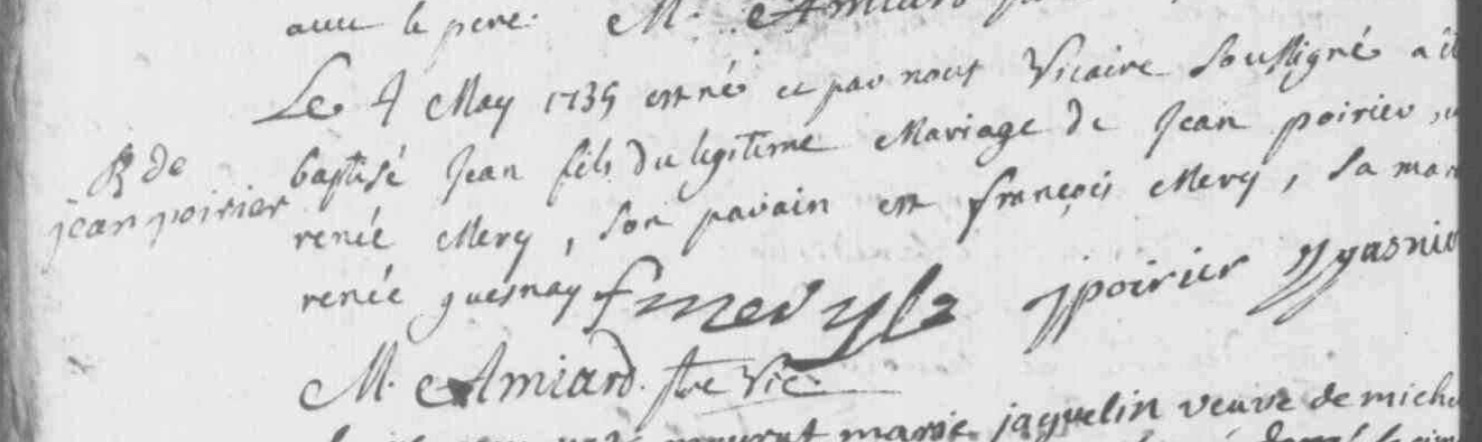 avec le pere. M. Amiard
Le 4 May 1735 est né et par nous Vicaire Soussigné a été
B de
jean poirier
baptisé Jean fils du legitime Mariage de Jean poirier, et
renée Mery, Son parain est françois Mery, Sa mar
renée guesnay fmery jpoirier
M. Amiard. ptre Vic.
mourut marie jaquelin veuve de miche